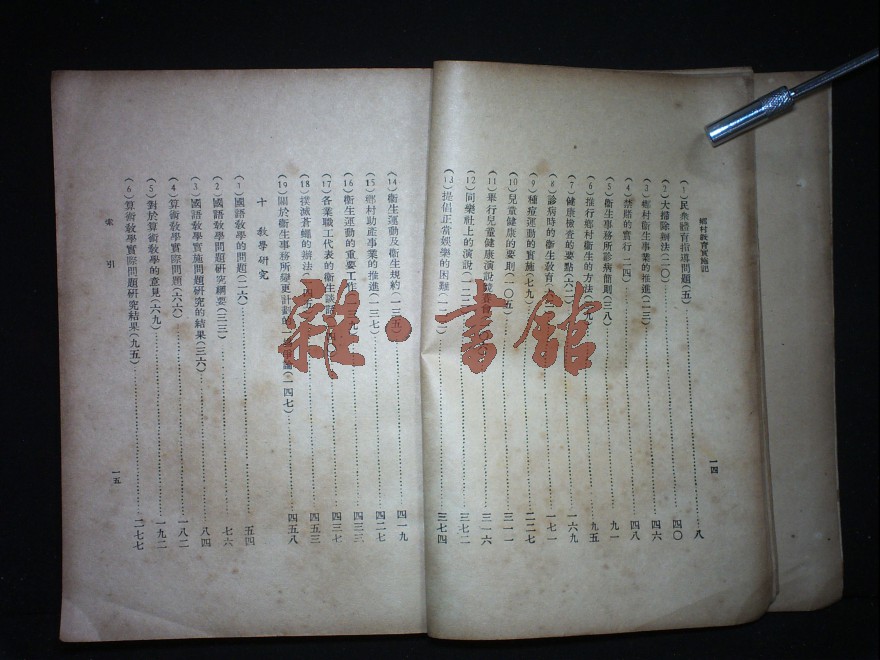 鄉村教育實施記
(1)民衆體育指導問題(五)……八
(2)大掃除辦法(二〇)……四〇
(3)鄉村衞生事業的推進(二三)……四六
(4)禁賭的實行(二四)……四八
(5)衞生事務所診病簡則(三八)……九一
(6)推行鄉村衞生的方法……九五
(7)健康檢查的要點(六二)……一六九
(8)診病時的衞生敎育……一七一
(9)種痘運動的實施(七九)……二二七
(10)兒童健康的要則(一〇五)……三一一
(11)舉行兒童健康演說競賽會……三一六
(12)同樂社上的演說……三七二
(13)提倡正當娛樂的困難……三七四
一四
(14)衞生運動及衞生規約(一三五)……四一九
(15)鄉村助產事業的推進(一三七)……四二七
(16)衞生運動的重要工作……四三三
(17)各業職工代表的衞生談話……四三七
(18)撲滅蒼蠅的辦法……四五三
(19)關於衞生事務所變更計劃的一場爭論(一四七)……四五八
十 敎學研究
(1)國語敎學的問題(二六)……五四
(2)國語敎學問題研究綱要(三三)……七六
(3)國語敎學實施問題研究的結果(三六)……八四
(4)算術敎學實際問題(六六)……一八二
(5)對於算術敎學的意見(六九)……一九二
(6)算術敎學實際問題研究結果(九五)……二七七
索引
一五
雜·書館